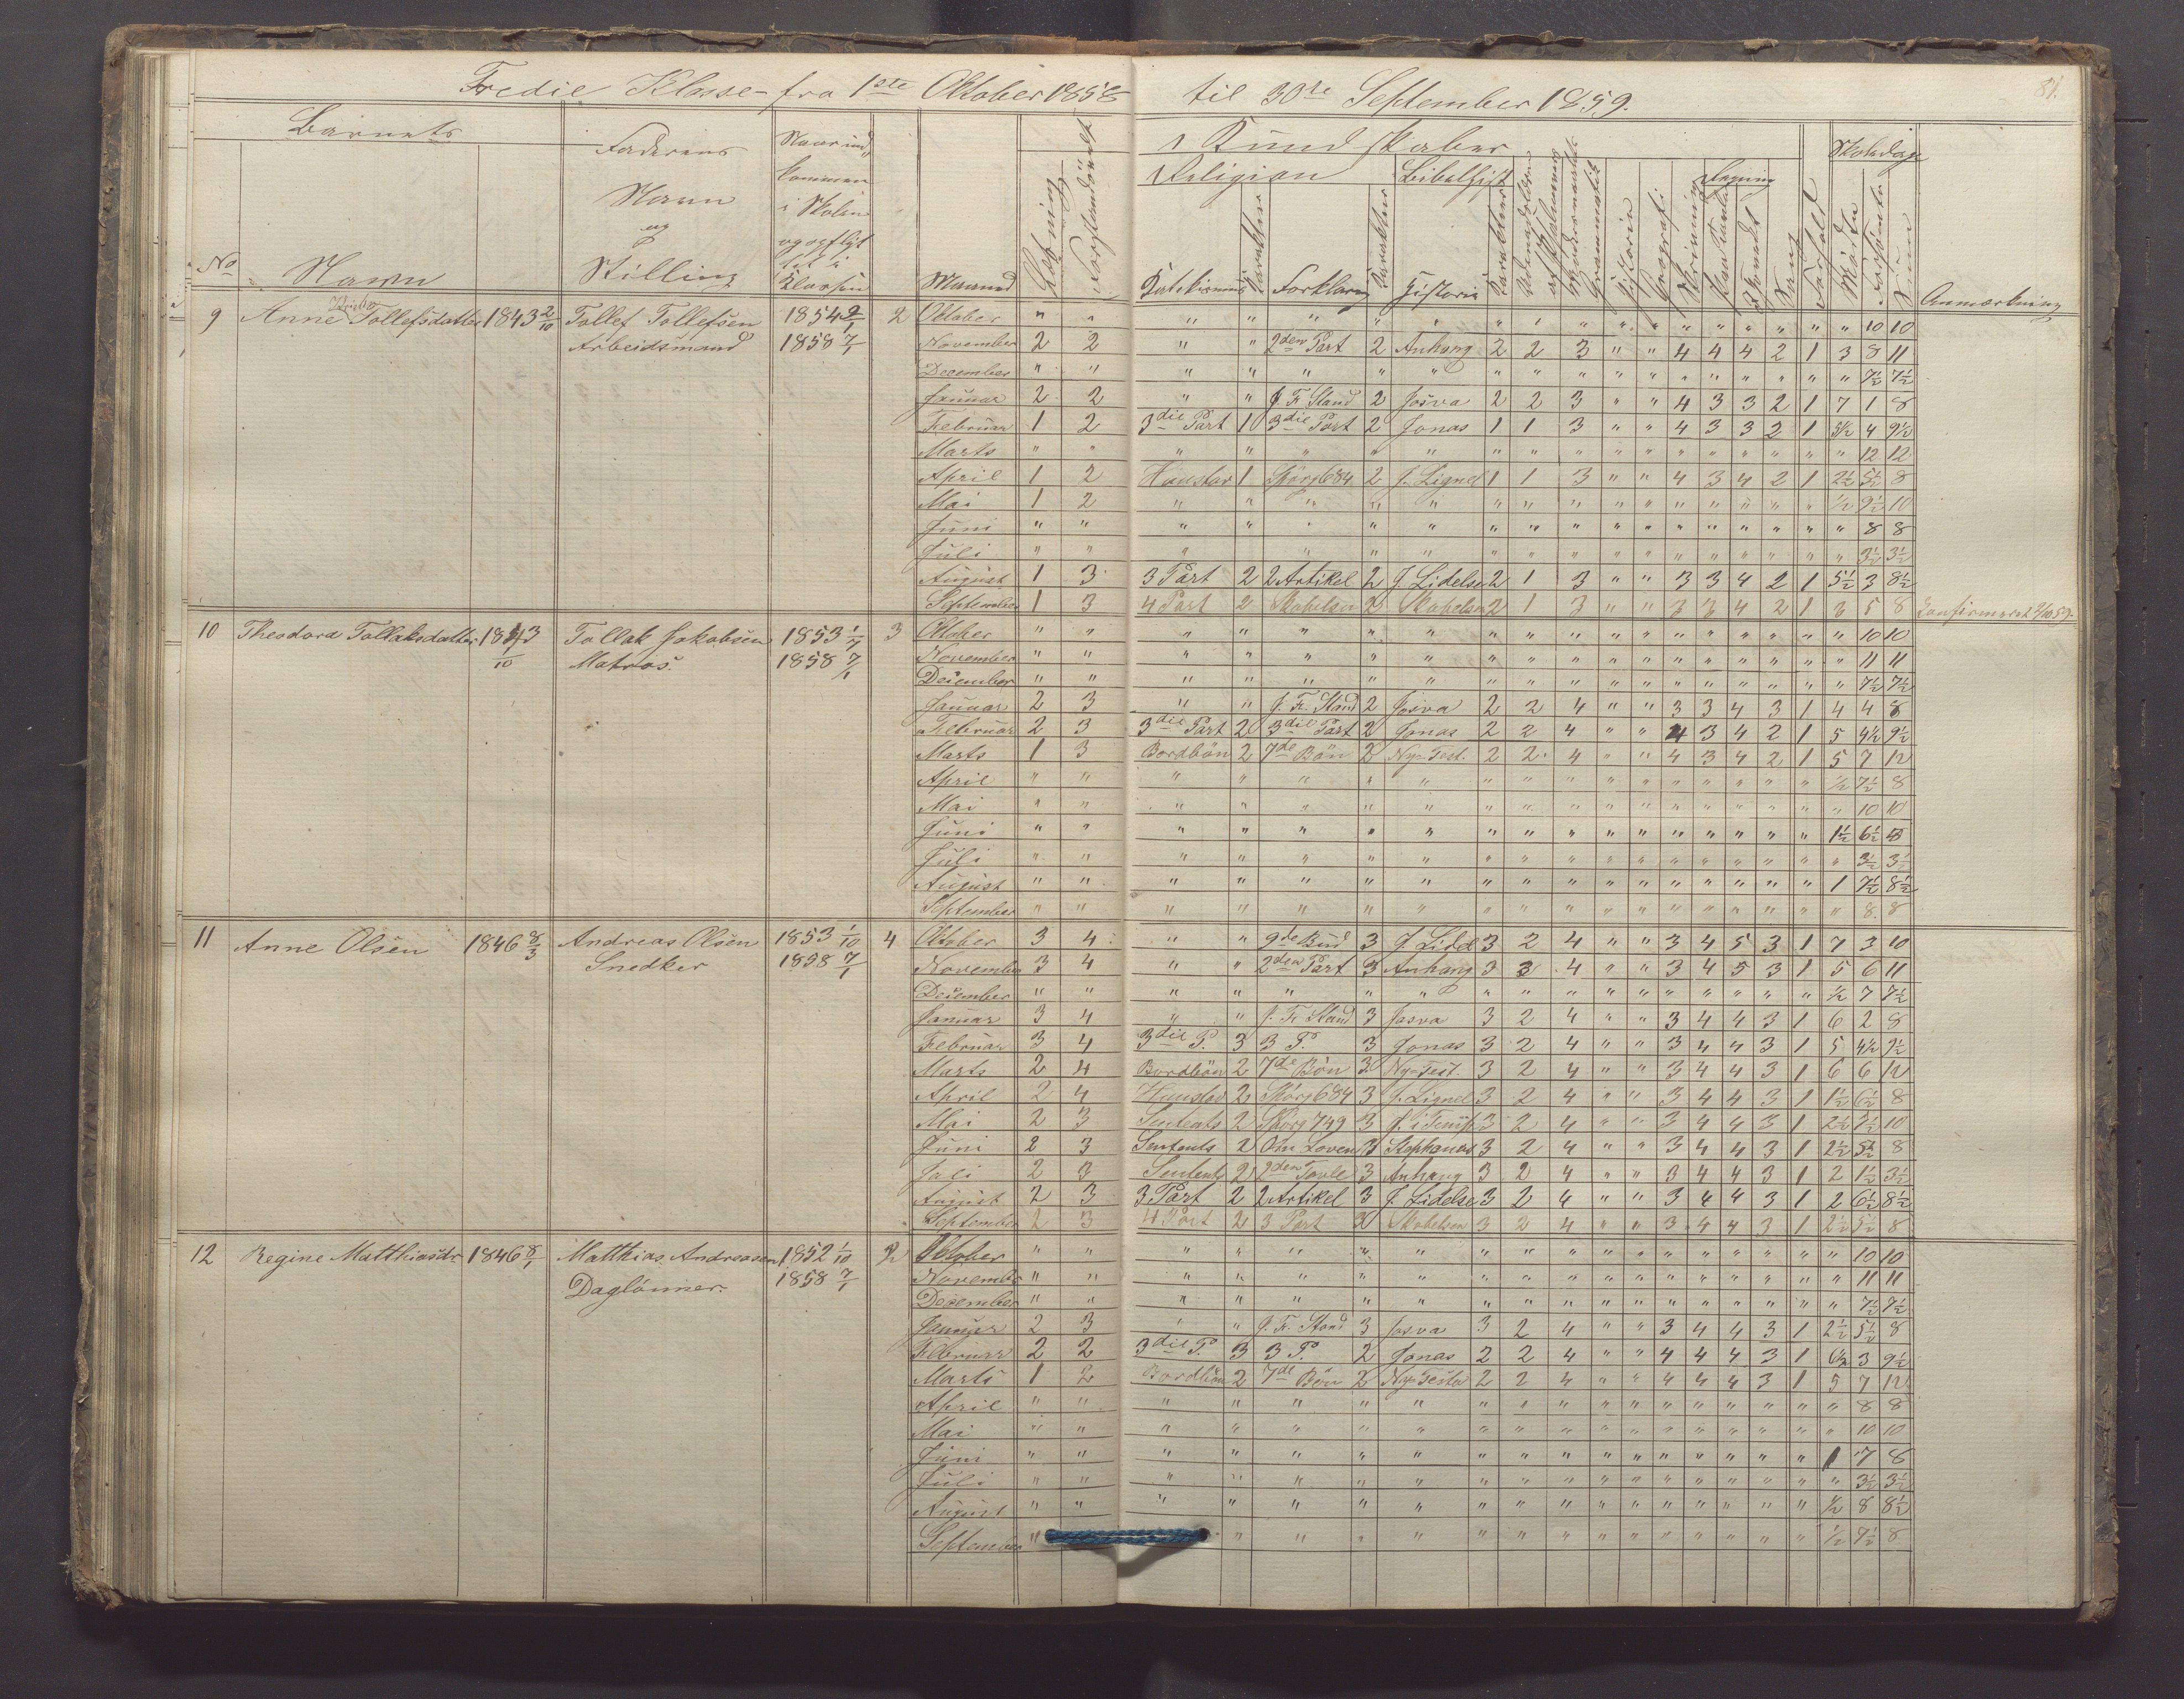 Tredie Klasse fra 1ste Oktober 1858 til 30te September 1859.
81.
Barnets
Faderens Navn og Stilling
Naar indkommen i Skolen og opflyttet i Klassen
Maaned
Læsning
Forstandsøvelse
Kundskaber
Religion
Bibelhist
Skoledage
No
Navn
Katekismus
Karakter
Forklaring
Karakter
Historie
Karakter
Grammatik
Historie
Geografi
Skrivning
Regning
Sang
Forhold
Mödte
Forsömte
Sum
Anmærkning
9 Anne Tollefsdatter 1843 2/10 Tollef Tollefsen 1854 2/1 2 Oktober " " " " " " " " " " " " " " " " " " 10 10
Arbeidsmand 1858 7/1 November 2 2 " " 2den Part 2 Anhang 2 2 3 " " 4 4 4 2 1 3 8 11
December " " " " " " " " " " " " " " " " " " 7½ 7½
Januar 2 2 " " J. Fr. Stand 2 Josva 2 2 3 " " 4 3 3 2 1 7 1 8
Februar 1 2 3die Part 1 3die Part 2 Jonas 1 1 3 " " 4 3 3 2 1 5½ 4 9½
Marts " " " " " " " " " " " " " " " " " " 12 12
April 1 2 Hanstav 1 Spörg 684 2 J. Lignel 1 1 3 " " 4 3 4 2 1 2½ 5½ 8
Mai 1 2 " " " " " " " " " " " " " " " ½ 9½ 10
Juni " " " " " " " " " " " " " " " " " " 8 8
Juli " " " " " " " " " " " " " " " " " " 3½ 3½
August 1 3 3 Part 2 2 Artikel 2 J. Lidelse 2 1 3 " " 3 3 4 2 1 5½ 3 8½
September 1 3 4 Part 2 Skabelsen 2 Skabelsen 2 1 3 " " 3 3 4 2 1 3 5 8 Confirmeret 2/10 59.
10 Theodora Tollaksdatter 1843 Tollak Jakobsen 1853 3 Oktober " " " " " " " " " " " " " " " " " " 10 10
Matros 1858 7/1 November " " " " " " " " " " " " " " " " " " 11 11
December " " " " " " " " " " " " " " " " " " 7½ 7½
Januar 2 3 " " J. Fr. Stand 2 Josva 2 2 4 " " 3 3 4 3 1 4 4 8
Februar 2 3 3die Part 2 3die Part 2 Jonas 2 2 4 " " 4 3 4 2 1 5 4½ 9½
Marts 1 3 Bordbön 2 7de Bön 2 Ny-Test. 2 2 4 " " 4 3 4 2 1 5 7 12
April " " " " " " " " " " " " " " " " " ½ 7½ 8
Mai " " " " " " " " " " " " " " " " " " 10 10
Juni " " " " " " " " " " " " " " " " " 1½ 6½ 8
Juli " " " " " " " " " " " " " " " " " " 3½ 3½
August " " " " " " " " " " " " " " " " " 1 7½ 8½
September " " " " " " " " " " " " " " " " " " 8 8
11 Anne Olsen 1846 8/3 Andreas Olsen 1853 1/10 4 Oktober 3 4 " " 9de Bud 3 J. Lidel 3 2 4 " " 3 4 5 3 1 7 3 10
Snedker 1858 7/1 November 3 4 " " 2den Part 3 Anhang 3 3 4 " " 3 4 5 3 1 5 6 11
December " " " " " " " " " " " " " " " " " ½ 7 7½
Januar 3 4 " " J. Fr. Stand 3 Josva 3 2 4 " " 3 4 4 3 1 6 2 8
Februar 3 4 3die P. 3 3 P. 3 Jonas 3 2 4 " " 3 4 4 3 1 5 4½ 9½
Marts 2 4 Bordbön 2 7de Bön 3 Ny-Test. 3 2 4 " " 3 4 4 3 1 6 6 12
April 2 4 Hanstav 2 Spörg 684 3 J. Lignel 3 2 4 " " 3 4 4 3 1 1½ 6½ 8
Mai 2 3 Sentents 2 Spörg 749 3 J. i Temp 3 2 4 " " 3 4 4 3 1 2½ 7½ 10
Juni 2 3 Sentents 2 Om Loven 3 Stephanas 3 2 4 " " 3 4 4 3 1 2½ 5½ 8
Juli 2 3 Sentents 2 2den Tavle 3 Anhang 3 2 4 " " 3 4 4 3 1 2 1½ 3½
August 2 3 3 Part 2 2 Artikel 3 J. Lidelse 3 2 4 " " 3 4 4 3 1 2 6½ 8½
September 2 3 4 Part 2 3 Part 3 Skabelsen 3 2 4 " " 3 4 4 3 1 2½ 5½ 8
12 Regine Matthiasdr 1846 8/1 Matthias Andreasen 1852 1/10 2 Oktober " " " " " " " " " " " " " " " " " " 10 10
Daglönner 1858 7/1 November " " " " " " " " " " " " " " " " " " 11 11
December " " " " " " " " " " " " " " " " " " 7½ 7½
Januar 2 3 " " J. Fr. Stand 3 Josva 3 2 4 " " 3 4 4 3 1 2½ 5½ 8
Februar 2 2 3die P. 3 3 P. 2 Jonas 2 2 4 " " 4 4 4 3 1 6½ 3 9½
Marts 1 2 Bordbön 2 7de Bön 2 Ny-Testa 2 2 4 " " 4 4 4 3 1 5 7 12
April " " " " " " " " " " " " " " " " " " 8 8
Mai " " " " " " " " " " " " " " " " " " 10 10
Juni " " " " " " " " " " " " " " " " " 1 7 8
Juli " " " " " " " " " " " " " " " " " " 3½ 3½
August " " " " " " " " " " " " " " " " " ½ 8 8½
September " " " " " " " " " " " " " " " ½ 7½ 8